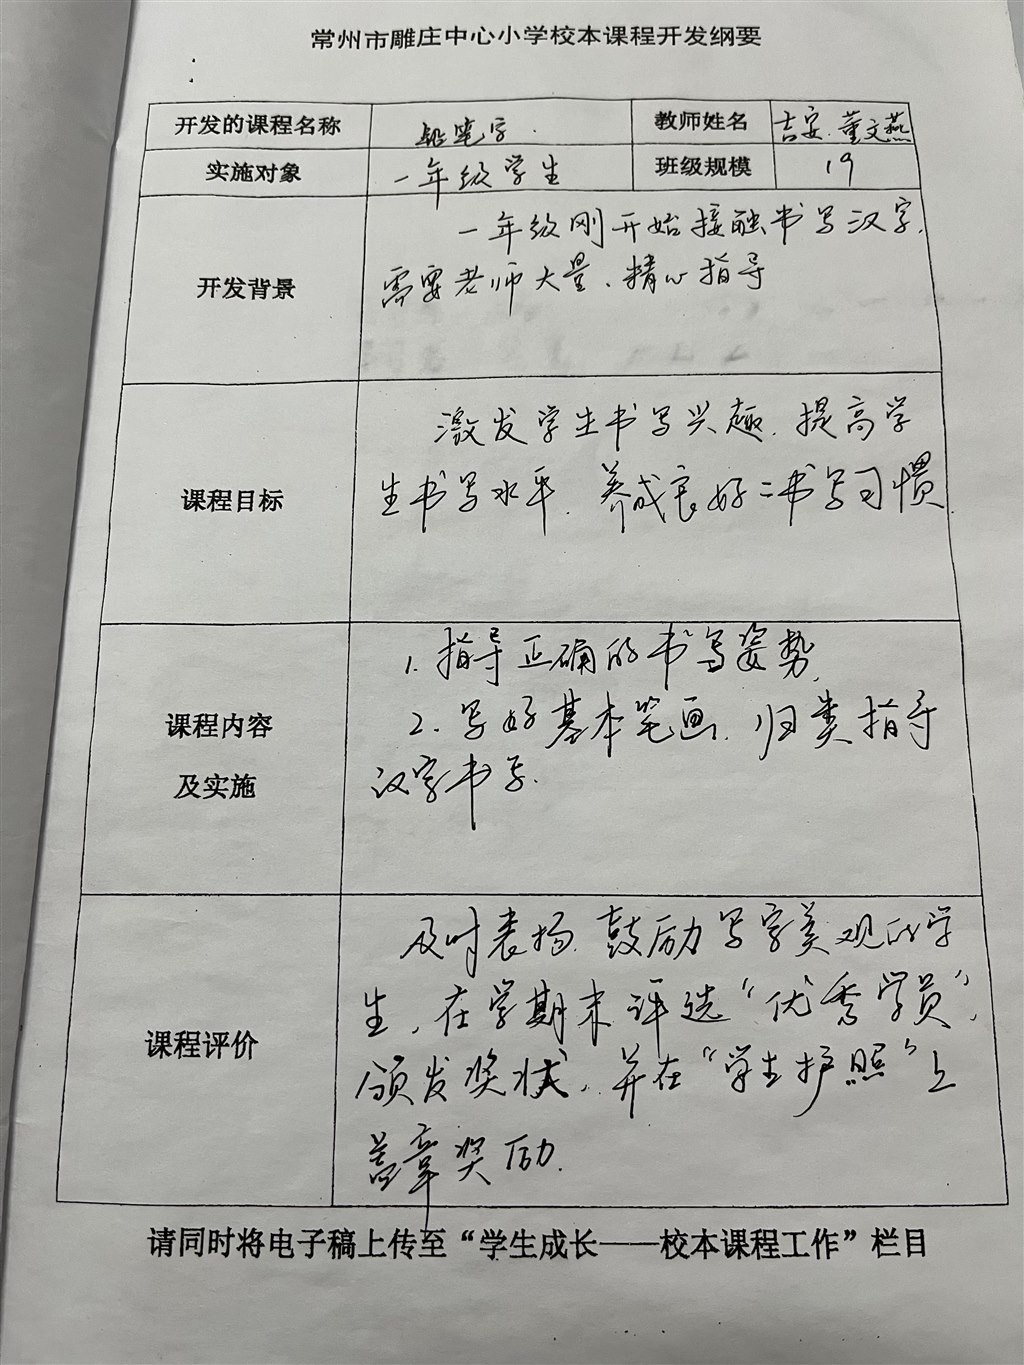 常州市雕庄中心小学校本课程开发纲要
开发的课程名称 铅笔字 教师姓名 吉安、董文燕
实施对象 一年级学生 班级规模 19
开发背景
一年级刚开始接触书写汉字，
需要老师大量、精心指导
课程目标
激发学生书写兴趣，提高学
生书写水平，养成良好的书写习惯
课程内容
及实施
1. 指导正确的书写姿势，
2. 写好基本笔画，归类指导
汉字书写.
课程评价
及时表扬、鼓励写字美观的学
生，在学期末评选“优秀学员”，
颁发奖状，并在“学生护照”上
盖章奖励.
请同时将电子稿上传至“学生成长——校本课程工作”栏目